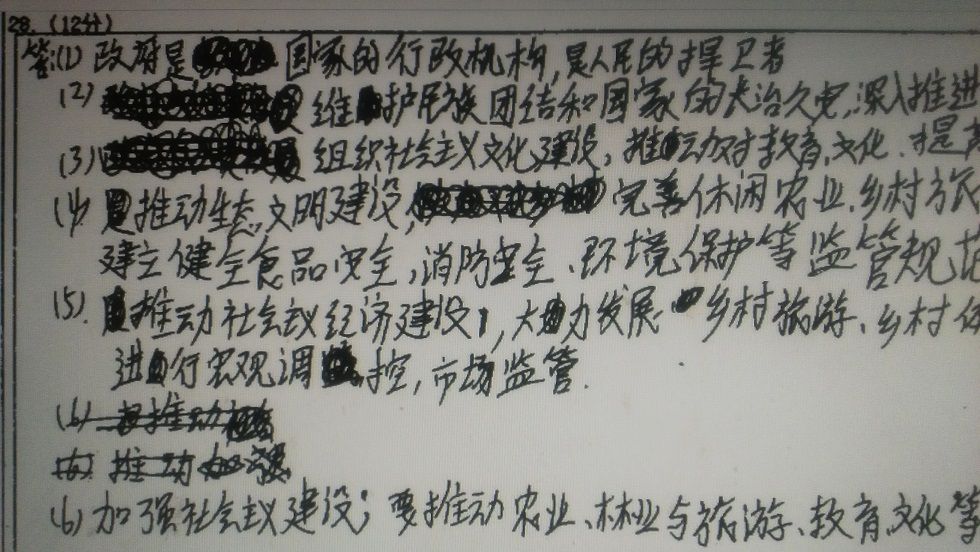 28.（12分）
答:(1) 政府是国家的行政机构,是人民的捍卫者
(2) 维护民族团结和国家的长治久安,深入推进
(3) 组织社会主义文化建设,推动对教育、文化、提
(4) 推动生态文明建设,完善休闲农业、乡村旅
建立健全食品安全,消防安全、环境保护等监管规范
(5). 推动社会主义经济建设,大力发展乡村旅游、乡村
进行宏观调控,市场监管.
(6) 推动
推动加强
(6) 加强社会主义建设;要推动农业、林业与旅游、教育、文化等